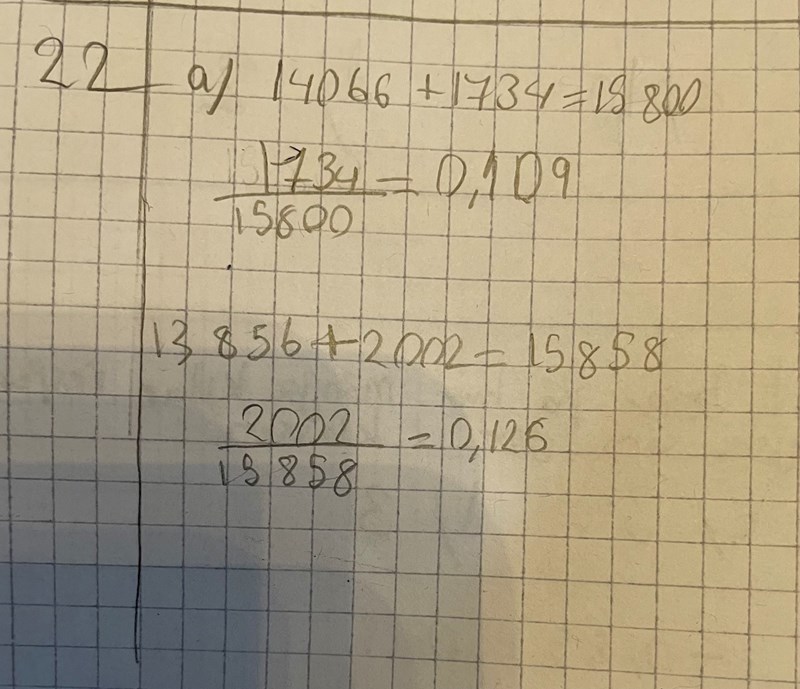 22 a) 14066 + 1734 = 15 800
1734 / 15800 = 0,109
13 856 + 2002 = 15858
2002 / 15 858 = 0,126